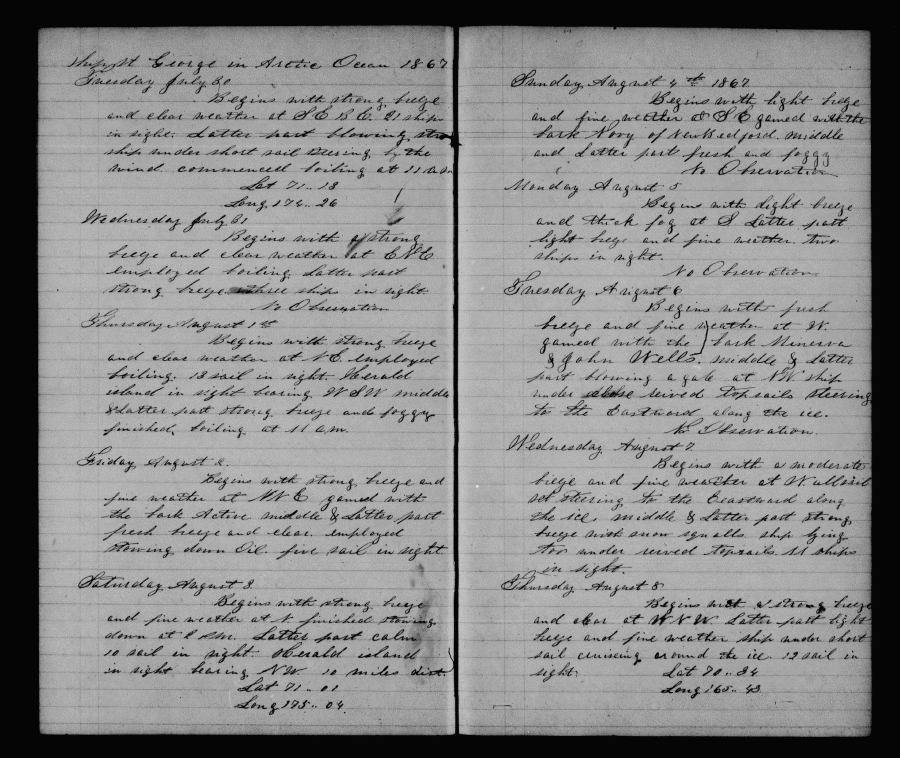 Ship St George in Arctic Ocean 1867
Tuesday July 30
Begins with strong breeze
and clear weather at S E B E. 21 ships
in sight. Latter part blowing strong
ship under short sail steering by the
wind commenced boiling at 11 a.m.
Lat 71.. 13
Long 174.. 26
Wednesday July 31
Begins with a strong
breeze and clear weather at E N E
employed boiling Latter part
strong breeze three ships in sight.
No Observation
Thursday August 1st
Begins with strong breeze
and clear weather at N E. employed
boiling. 13 sail in sight. Herald
island in sight bearing W S W middle
& Latter part strong breeze and foggy
finished boiling at 11 a.m.
Friday August 2.
Begins with strong breeze and
fine weather at N N E gamed with
the bark Active middle & Latter part
fresh breeze and clear. employed
stowing down Oil. five sail in sight
Saturday August 3.
Begins with strong breeze
and fine weather at N finished stowing
down at 8 P.M. Latter part calm
10 sail in sight Herald island
in sight bearing N W. 10 miles dist.
Lat 71.. 01
Long 175.. 04.
Sunday August 4th 1867
Begins with light breeze
and fine weather at S E gamed with the
bark Navy of New Bedford. middle
and Latter part fresh and foggy
No Observation
Monday August 5
Begins with light breeze
and thick fog at S Latter part
light breeze and fine weather. two
ships in sight.
No Observation
Tuesday August 6
Begins with fresh
breeze and fine weather at W.
gamed with the bark Minerva
& John Wells. middle & Latter
part blowing a gale at N W ship
under close reived topsails steering
to the Eastward along the ice.
No Observation.
Wednesday August 7.
Begins with a moderate
breeze and fine weather at W all sail
set steering to the Eeastward along
the ice. middle & Latter part strong
breeze with snow squalls ship lying
too under reived topsails 11 ships
in sight.
Thursday August 8
Begins with a strong breeze
and clear at W N W Latter part light
breeze and fine weather ship under short
sail cruiseing around the ice. 12 sail in
sight.
Lat 70.. 34
Long 165.. 43